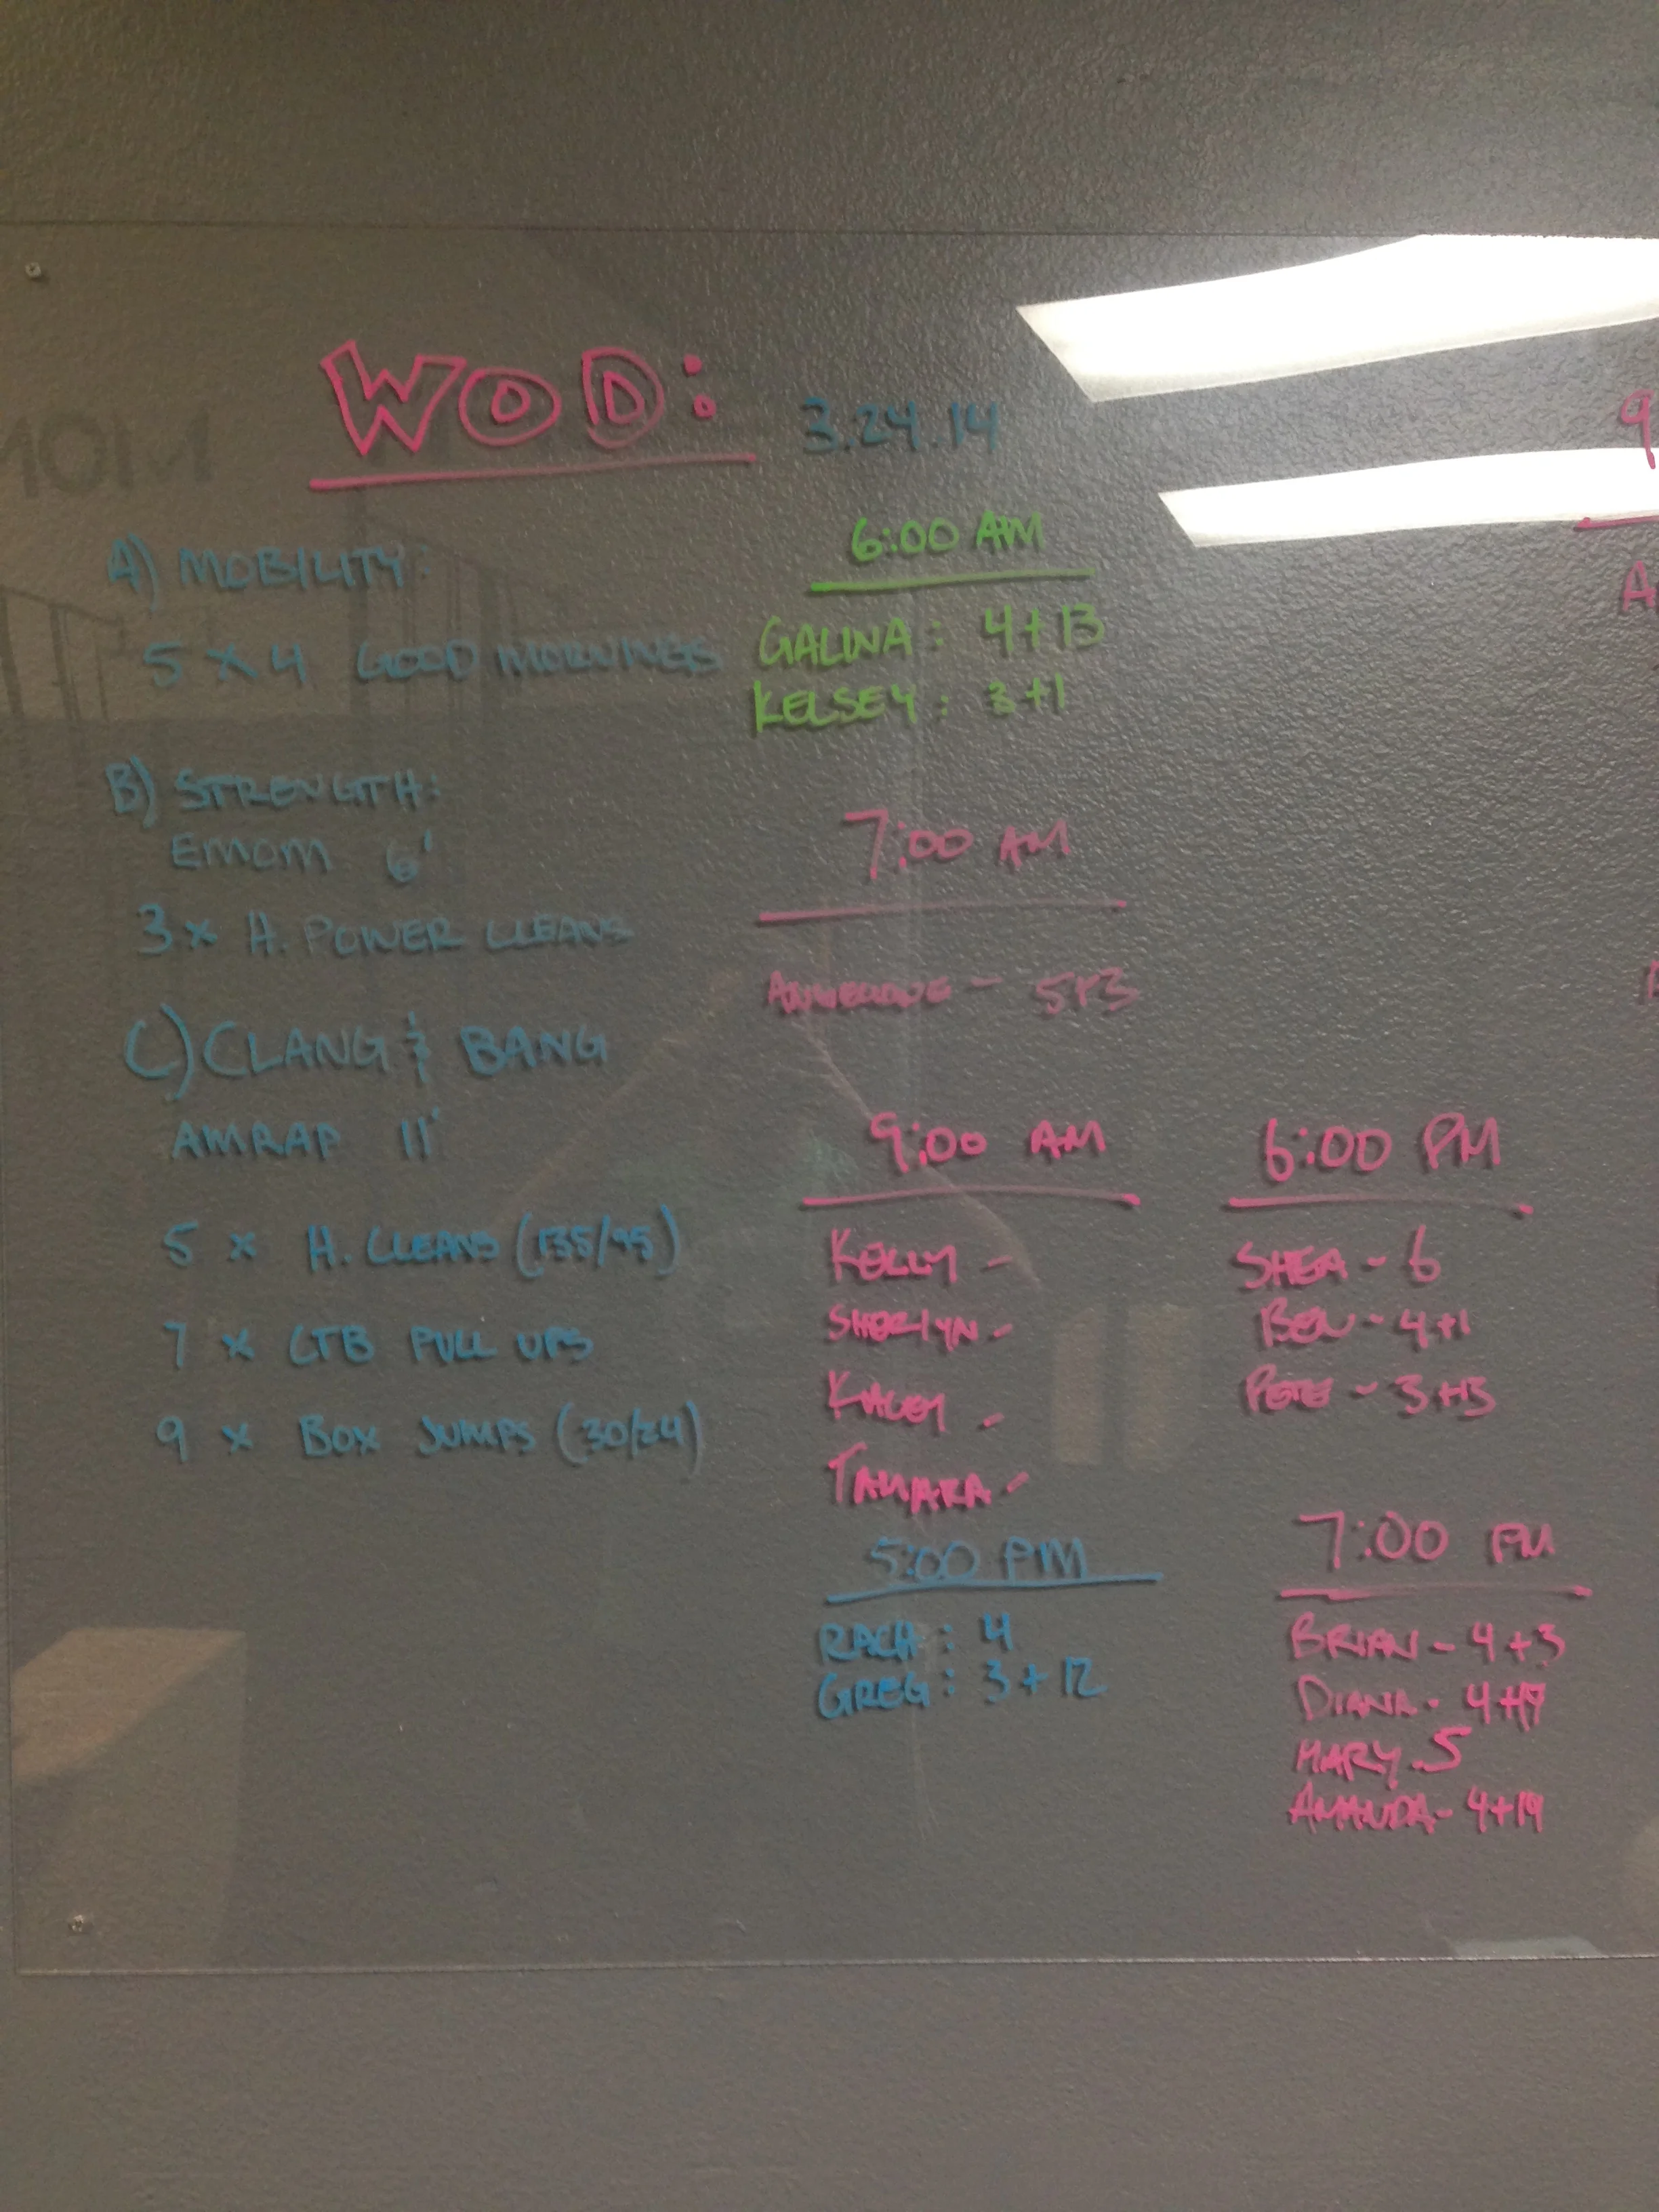 WOD: 3.24.14
A) MOBILITY:
5 x 4 GOOD MORNINGS
B) STRENGTH:
EMOM 6'
3 x H. POWER CLEANS
C) CLANG & BANG
AMRAP 11'
5 x H. CLEANS (135/95)
7 x CTB PULL UPS
9 x BOX JUMPS (30/24)
6:00 AM
GALINA: 4+13
KELSEY: 3+1
7:00 AM
- 5+3
9:00 AM
KELLY -
SHERLYN -
KACEY -
TAMARA -
5:00 PM
RACH: 4
GREG: 3+12
6:00 PM
SHEA - 6
BEN - 4+1
PETE - 3+13
7:00 PM
BRIAN - 4+3
DIANA - 4+17
MARY - 5
AMANDA - 4+19
9
A